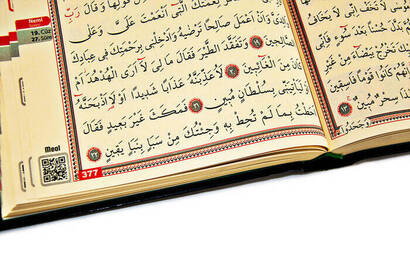 لَا يَخَافُ
حُسْنًا بَعْدَ سُوءٍ
تَخْرُجْ بَيْضَاءَ مِنْ غَيْرِ
كَانُوا قَوْمًا فَاسِقِينَ
سِحْرٌ مُبِينٌ ١٣
وَجَحَدُوا
Neml
19. Cüz
27. Sûre
قَوْلِهَا وَقَالَ رَبِّ
نِعْمَتَكَ الَّتِي أَنْعَمْتَ عَلَيَّ وَعَلَى
وَالِدَيَّ وَأَنْ أَعْمَلَ صَالِحًا تَرْضٰيهُ وَأَدْخِلْنِي بِرَحْمَتِكَ فِي عِبَادِكَ
الصَّالِحِينَ ١٩ وَتَفَقَّدَ الطَّيْرَ فَقَالَ مَا لِيَ لَا أَرَى الْهُدْهُدَ أَمْ
كَانَ مِنَ الْغَائِبِينَ ٢٠ لَأُعَذِّبَنَّهُ عَذَابًا شَدِيدًا أَوْ لَأَاذْبَحَنَّهُ
أَوْ لَيَأْتِيَنِّي بِسُلْطَانٍ مُبِينٍ ٢١ فَمَكَثَ غَيْرَ بَعِيدٍ فَقَالَ
أَحَطْتُ بِمَا لَمْ تُحِطْ بِهِ وَجِئْتُكَ مِنْ سَبَإٍ بِنَبَإٍ يَقِينٍ ٢٢
Meal
377